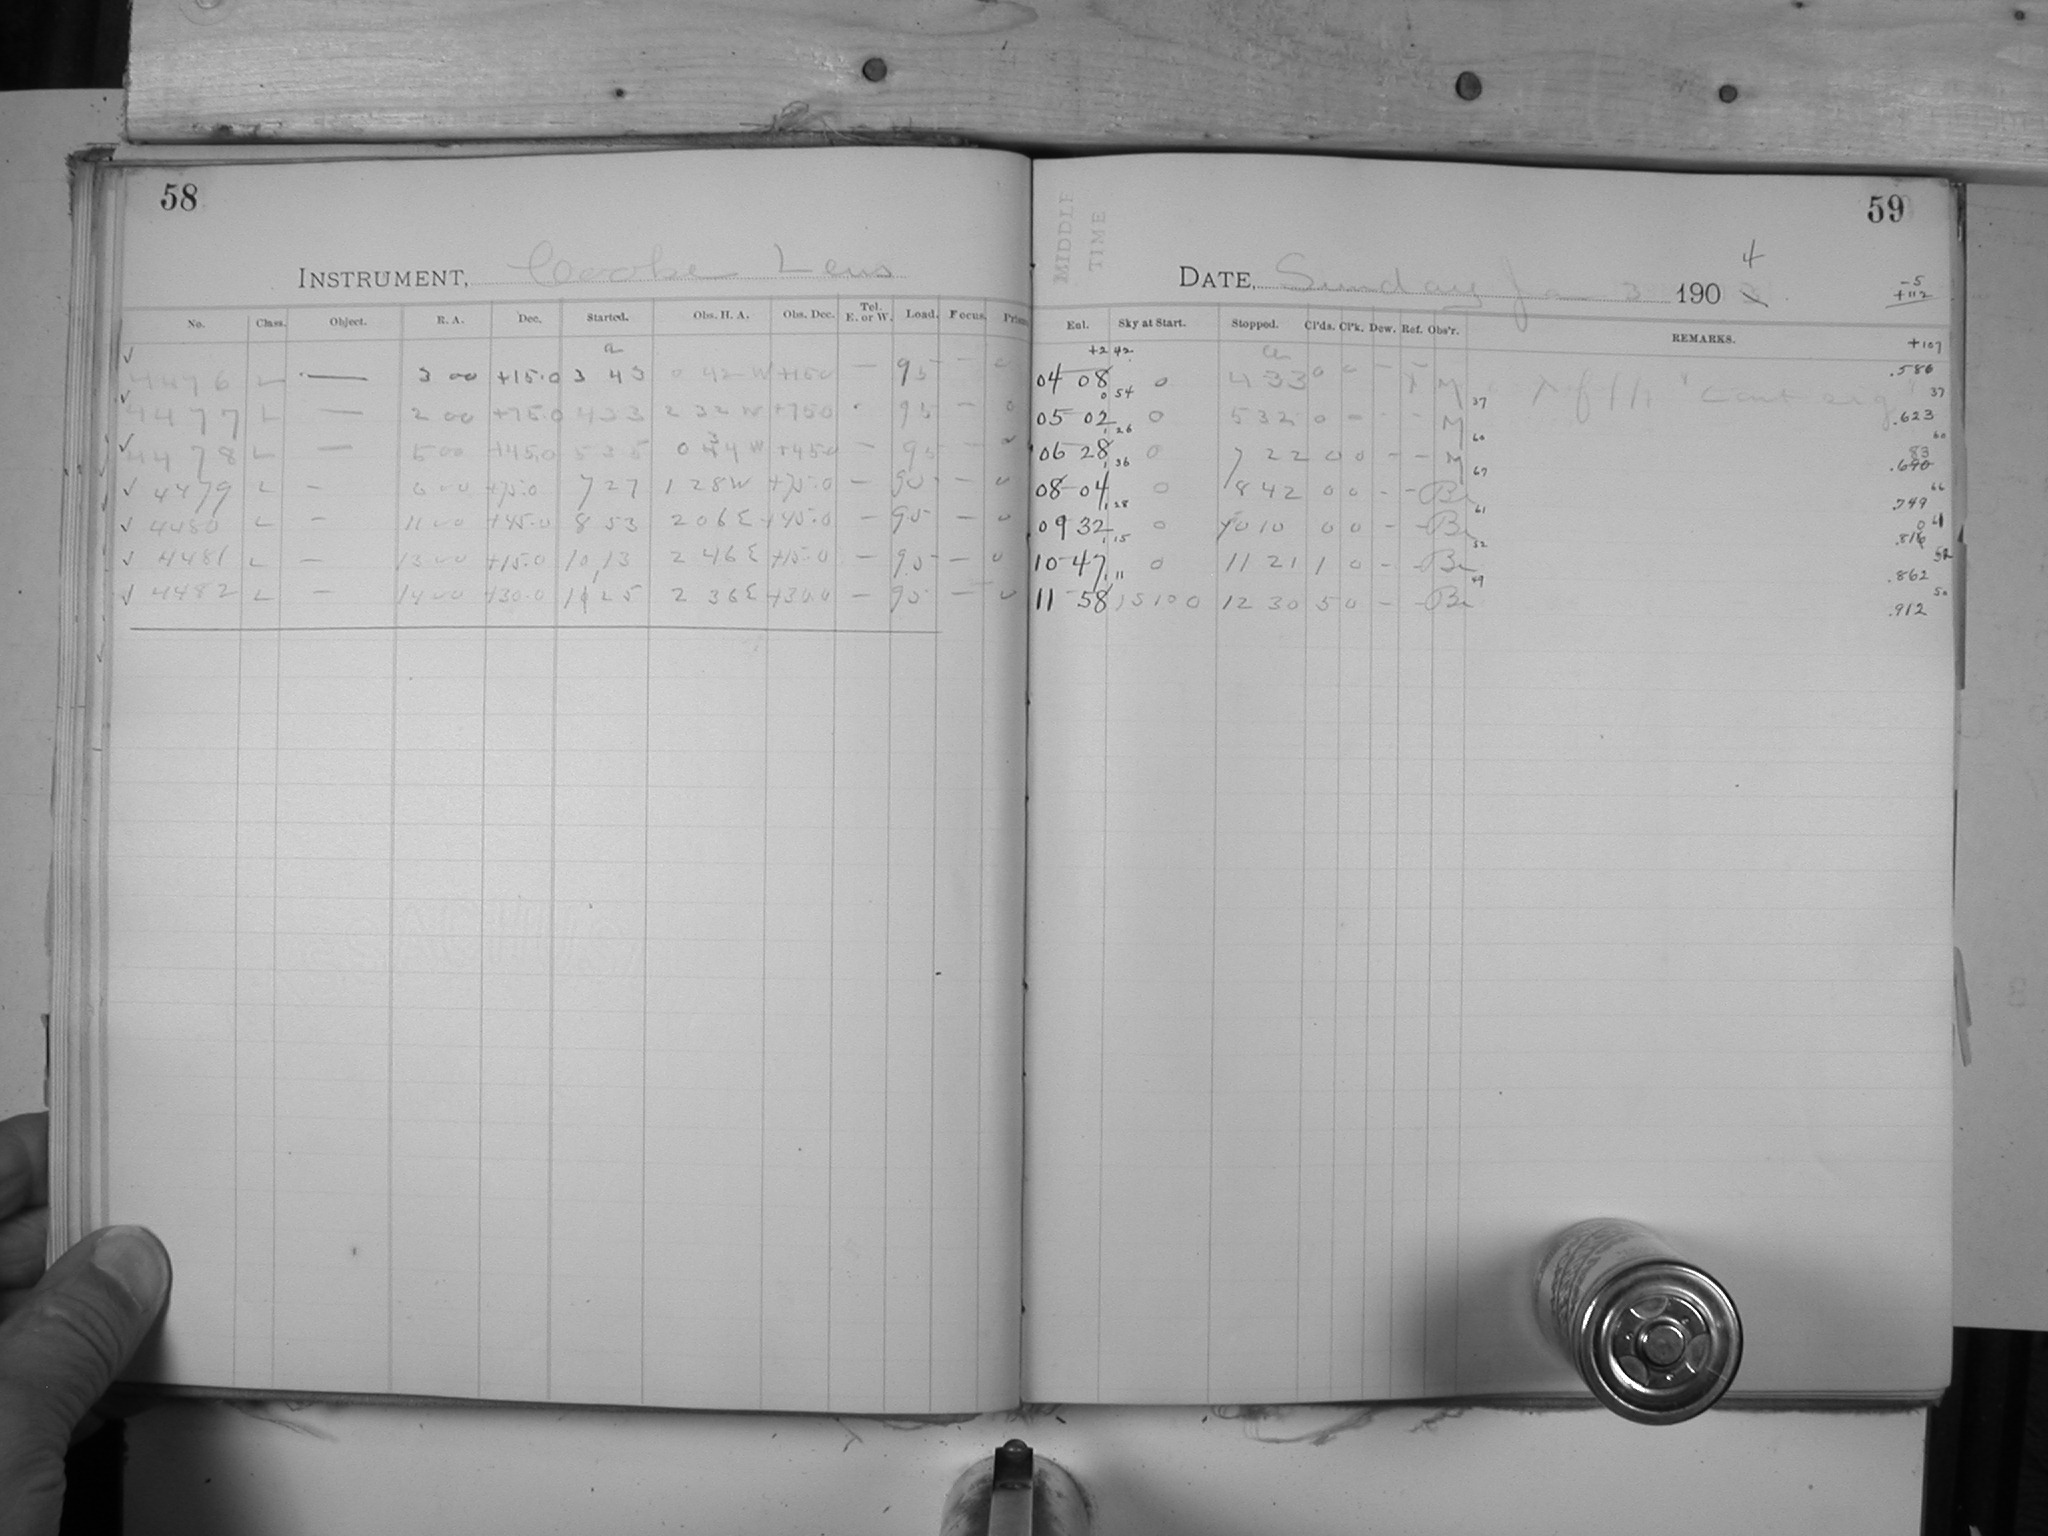 58
INSTRUMENT, Cooke Lens
No. Class. Object. R. A. Dec. Started. Obs. H. A. Obs. Dec. Tel. E. or W. Load. Focus. Prism
✓ 4476 L — 3 00 +15.0 3 43 0 42 W +15.0 — 95 — 0
✓ 4477 L — 2 00 +75.0 4 33 2 32 W +75.0 95 — 0
✓ 4478 L — 5 00 +45.0 5 35 +45.0 — 95 — 0
✓ 4479 L — 6 00 +75.0 7 27 1 28 W +75.0 — 95 — 0
✓ 4480 L — 11 00 +45.0 8 53 2 06 E +45.0 — 95 — 0
✓ 4481 L — 13 00 +15.0 10 13 2 46 E +15.0 — 95 — 0
✓ 4482 L — 14 00 +30.0 11 25 2 36 E +30.0 — 95 — 0
59
MIDDLE
TIME
DATE, Sunday Ja 3 190 4
-5
+112
Enl. Sky at Start. Stopped. Cl'ds. Cl'k. Dew. Ref. Obs'r. REMARKS. +107
+2 42
04 08 0 4 33 0 0 — M .586
0 54 37 37
05 02 0 5 32 0 — - - M .623
1 26 60 60
06 28 0 7 22 0 0 - - M 83 .690
1 36 67 66
08 04 0 8 42 0 0 - - Br .749
1 28 61 61
09 32 0 10 10 0 0 - - Br
1 15 52 52
10 47 0 11 21 1 0 - - Br .862
1 11 49 50
11 58 15100 12 30 5 0 - - Br .912